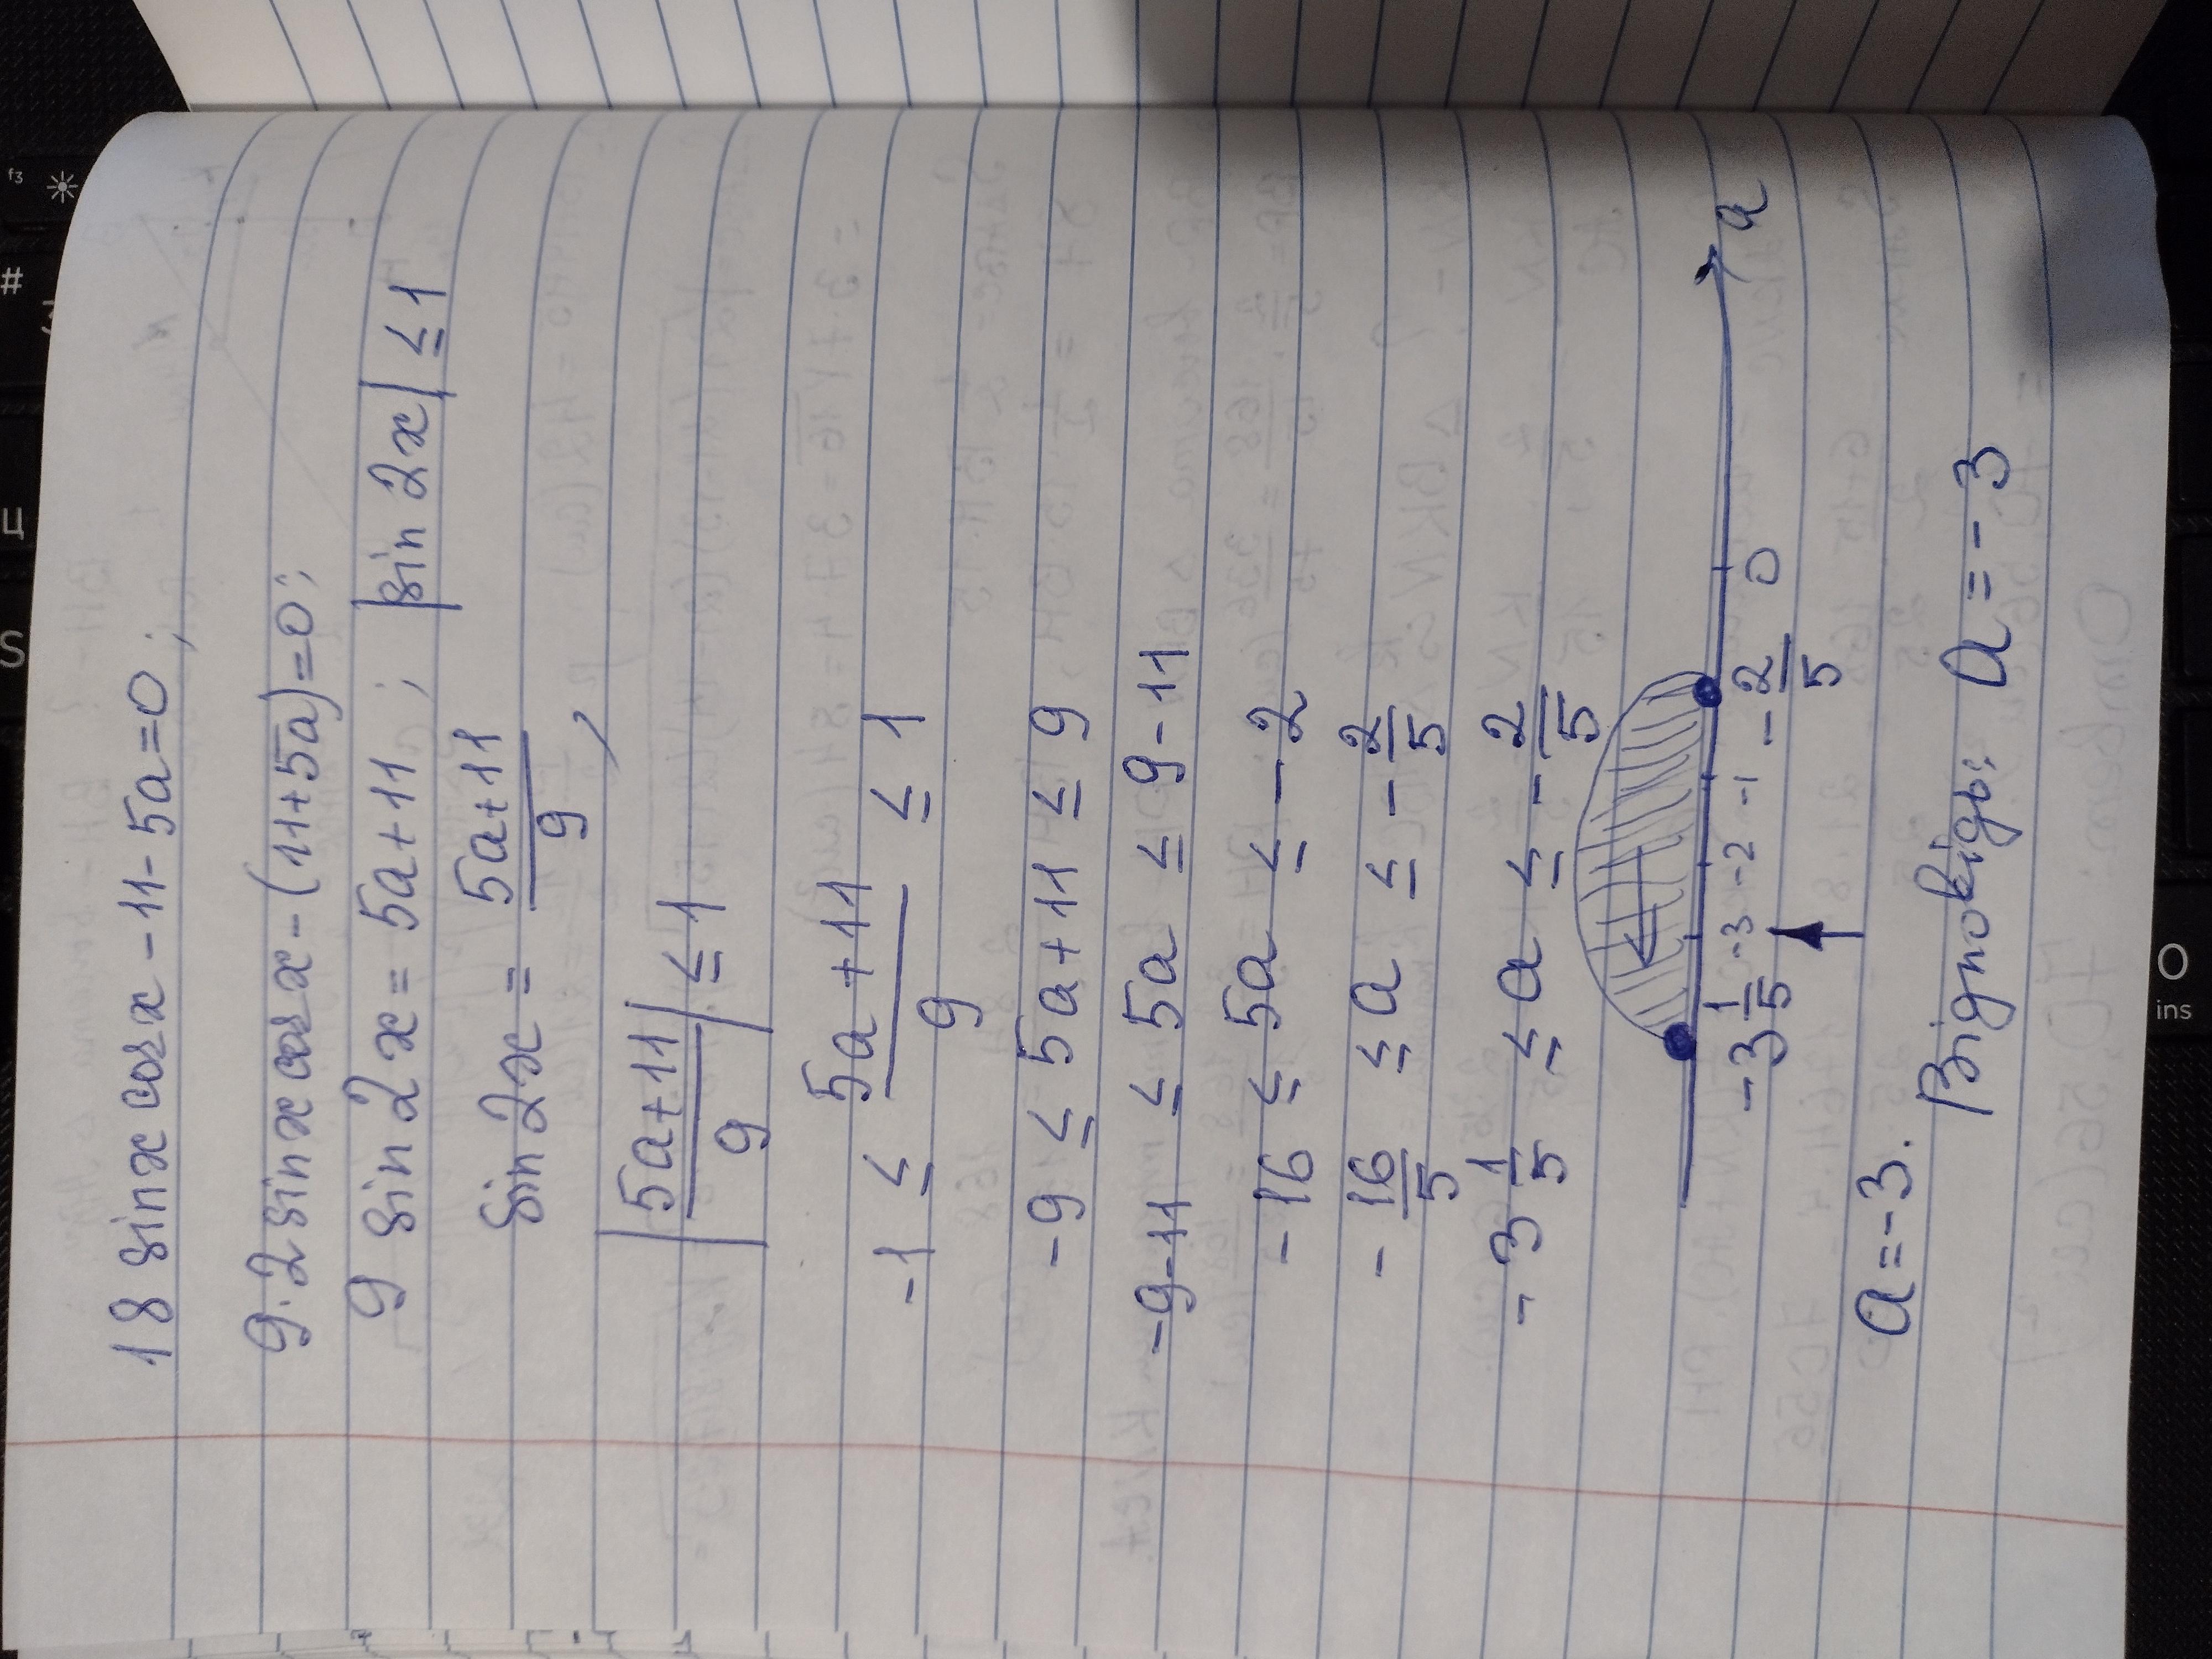 18 sinx cosx - 11 - 5a = 0;
9·2 sinx cosx - (11+5a) = 0;
9 sin 2x = 5a + 11; |sin 2x| ≤ 1
sin 2x = \frac{5a+11}{9},
|\frac{5a+11}{9}| ≤ 1
-1 ≤ \frac{5a+11}{9} ≤ 1
-9 ≤ 5a + 11 ≤ 9
-9-11 ≤ 5a ≤ 9-11
-16 ≤ 5a ≤ -2
-\frac{16}{5} ≤ a ≤ -\frac{2}{5}
-3\frac{1}{5} ≤ a ≤ -\frac{2}{5}
-3\frac{1}{5} -3 -2 -1 -\frac{2}{5} 0 a
a = -3.
Відповідь: a = -3
f3
#
3
Ц
S
O
ins